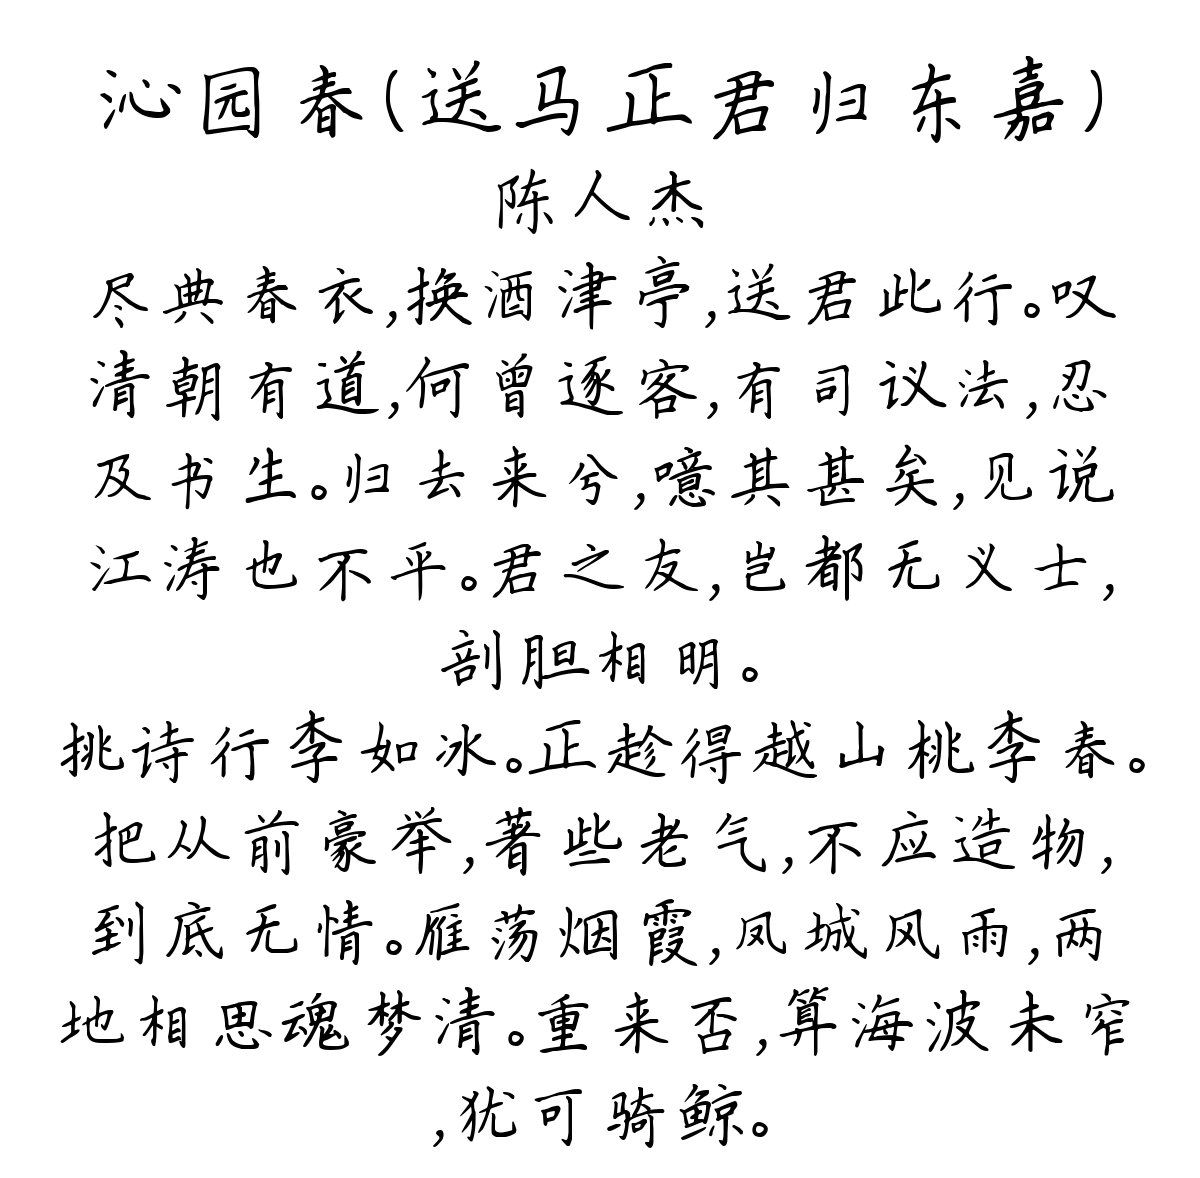 沁园春(送马正君归东嘉)
陈人杰
尽典春衣,换酒津亭,送君此行。叹
清朝有道,何曾逐客,有司议法,忍
及书生。归去来兮,噫其甚矣,见说
江涛也不平。君之友,岂都无义士,
剖胆相明。
挑诗行李如冰。正趁得越山桃李春。
把从前豪举,著些老气,不应造物,
到底无情。雁荡烟霞,凤城风雨,两
地相思魂梦清。重来否,算海波未窄
,犹可骑鲸。